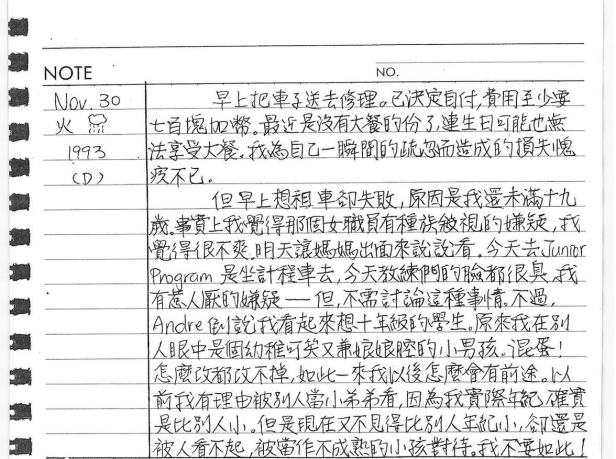 NOTE NO.
Nov. 30 早上把車子送去修理。已決定自付,費用至少要
火 七百塊加幣。最近是沒有大餐的份了,連生日可能也無
1993 法享受大餐。我為自己一瞬間的疏忽而造成的損失愧
(D) 疚不已。
但早上想租車卻失敗,原因是我還未滿十九
歲。事實上我覺得那個女職員有種族歧視的嫌疑,我
覺得很不爽。明天讓媽媽出面來說說看。今天去Junior
Program 是坐計程車去,今天教練們的臉都很臭。我
有惹人厭的嫌疑——但,不需討論這種事情。不過,
Andre倒說我看起來想十年級的學生。原來我在別
人眼中是個幼稚可笑又兼娘娘腔的小男孩。混蛋!
怎麼改都改不掉,如此一來我以後怎麼會有前途。以
前我有理由被別人當小弟弟看,因為我實際年紀確實
是比別人小。但是現在又不見得比別人年紀小,卻還是
被人看不起,被當作不成熟的小孩對待。我不要如此!